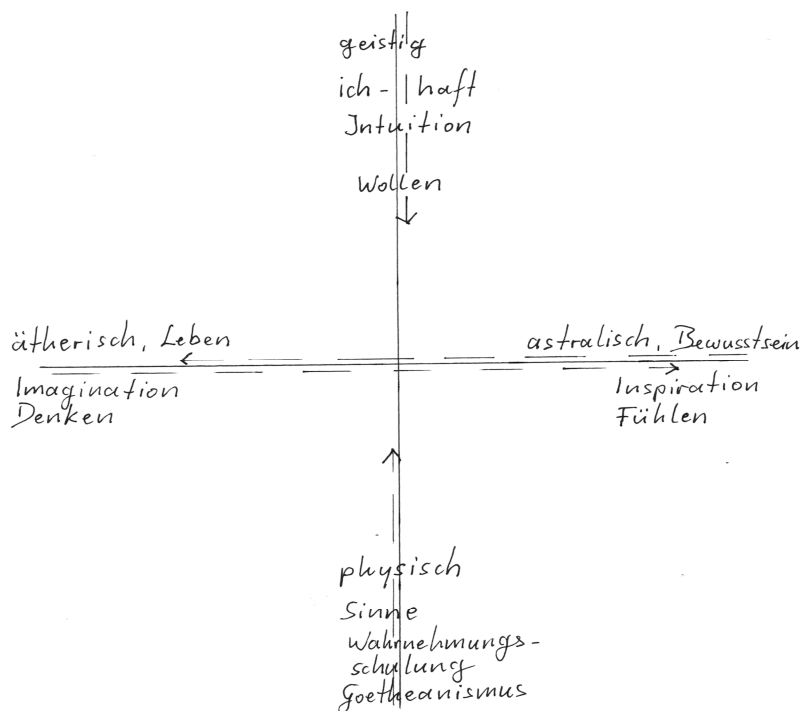 geistig
ich-haft
Intuition
Wollen
ätherisch, Leben
Imagination
Denken
astralisch, Bewusstsein
Inspiration
Fühlen
physisch
Sinne
Wahrnehmungs-
schulung
Goetheanismus